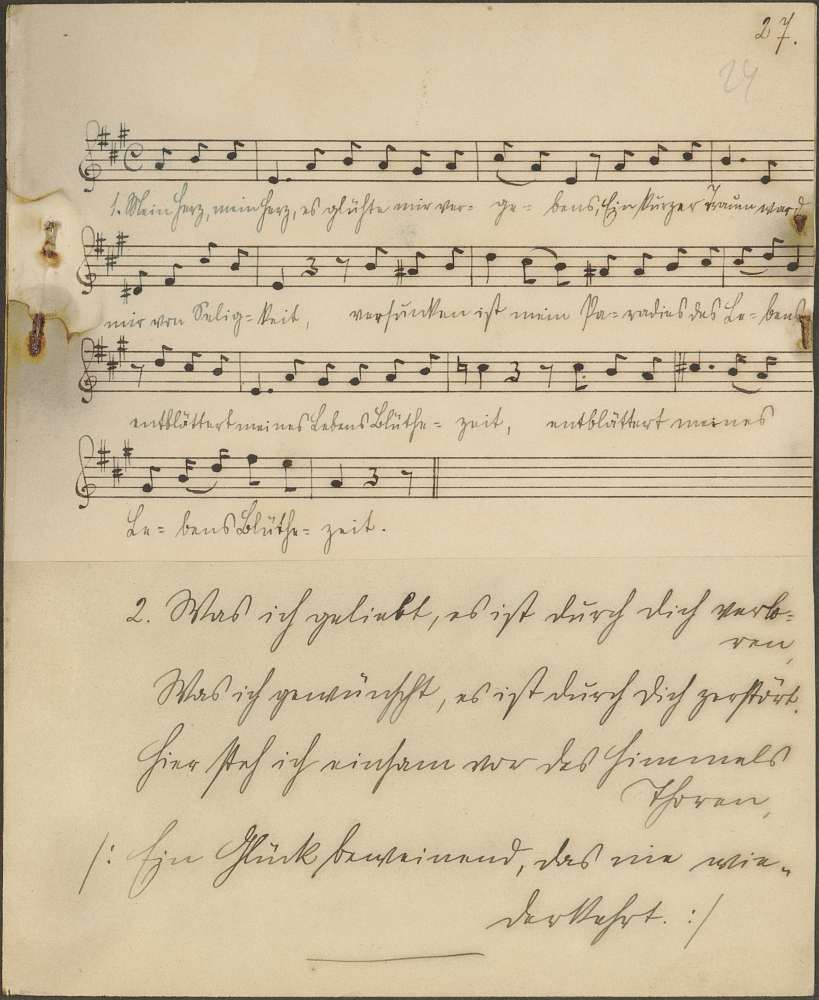 27.
24
1. Mein Herz, mein Herz, es glühte mir ver= ge= bens, Ein kurzer Traum ward
mir von Selig= keit, versunken ist mein Pa= radies des Le= bens
entblättert meines Lebens Blüthe= zeit, entblättert meines
Le= bens Blüthe= zeit.
2. Was ich geliebt, es ist durch dich verlo=
ren,
Was ich gewünscht, es ist durch dich zerstört.
Hier steh ich einsam vor des Himmels
Thoren,
/: Ein Glück beweinend, das nie wie=
derkehrt. :/